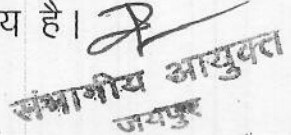 य है।
संभागीय आयुक्त
जयपुर